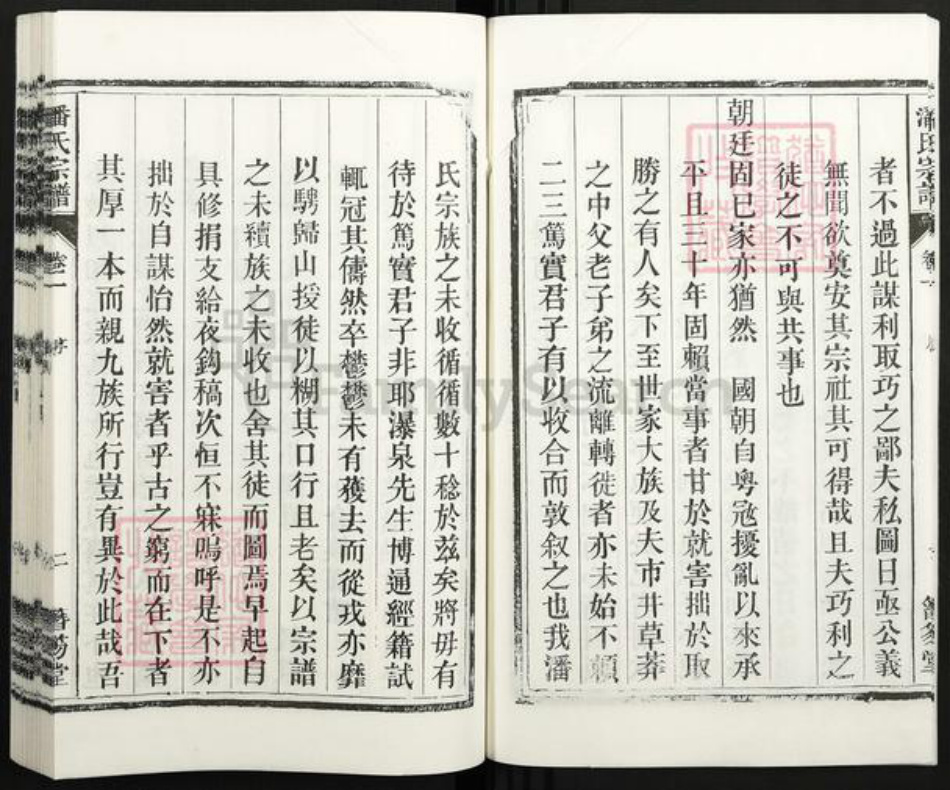 者不過此謀利取巧之鄙夫私圖日亟公義
無聞欲奠安其宗社其可得哉且夫巧利之
徒之不可與共事也
朝廷固已家亦猶然　國朝自粵冦擾亂以來承
平且三十年固賴當事者甘於就害拙於取
勝之有人矣下至世家大族及夫市井草莽
之中父老子弟之流離轉徙者亦未始不賴
二三篤實君子有以收合而敦叙之也我潘
氏宗族之未收循循數十稔於茲矣將毋有
待於篤實君子非耶瀑泉先生博通經籍試
輒冠其儔然卒鬱鬱未有獲去而從戎亦靡
以騁歸山授徒以糊其口行且老矣以宗譜
之未續族之未收也舍其徒而圖焉早起自
具修捐支給夜鈎稿次恒不寐嗚呼是不亦
拙於自謀怡然就害者乎古之窮而在下者
其厚一本而親九族所行豈有異於此哉吾
潘氏宗譜
卷一
序
二
FamilySearch